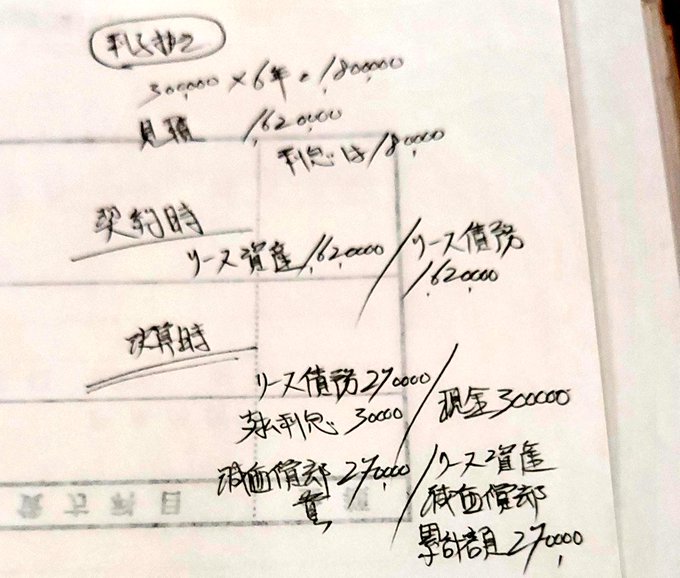 利子抜き
300,000×6年=1,800,000
見積 1,620,000
利息は180,000
契約時
リース資産1,620,000/リース債務
1,620,000
決算時
リース債務270,000/現金300000
支払利息 30000
減価償却 270,000/リース資産
費 減価償却
累計額270,000
貸方科目